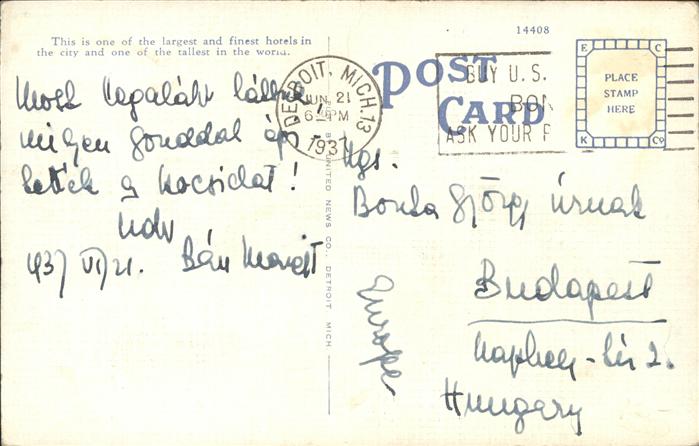 14408
This is one of the largest and finest hotels in
the city and one of the tallest in the world.
POST
CARD
DETROIT, MICH. 13
JUN 21
6-PM
1937
BUY U.S.
BON
ASK YOUR P
E C
PLACE
STAMP
HERE
K Co
UNITED NEWS CO., DETROIT, MICH.
Most legalább
milyen gonddal
a kocsidat!
Üdv
937 VI/21. Bán
Ngs.
György úrnak
Budapest
tér 2.
Hungary
Europe